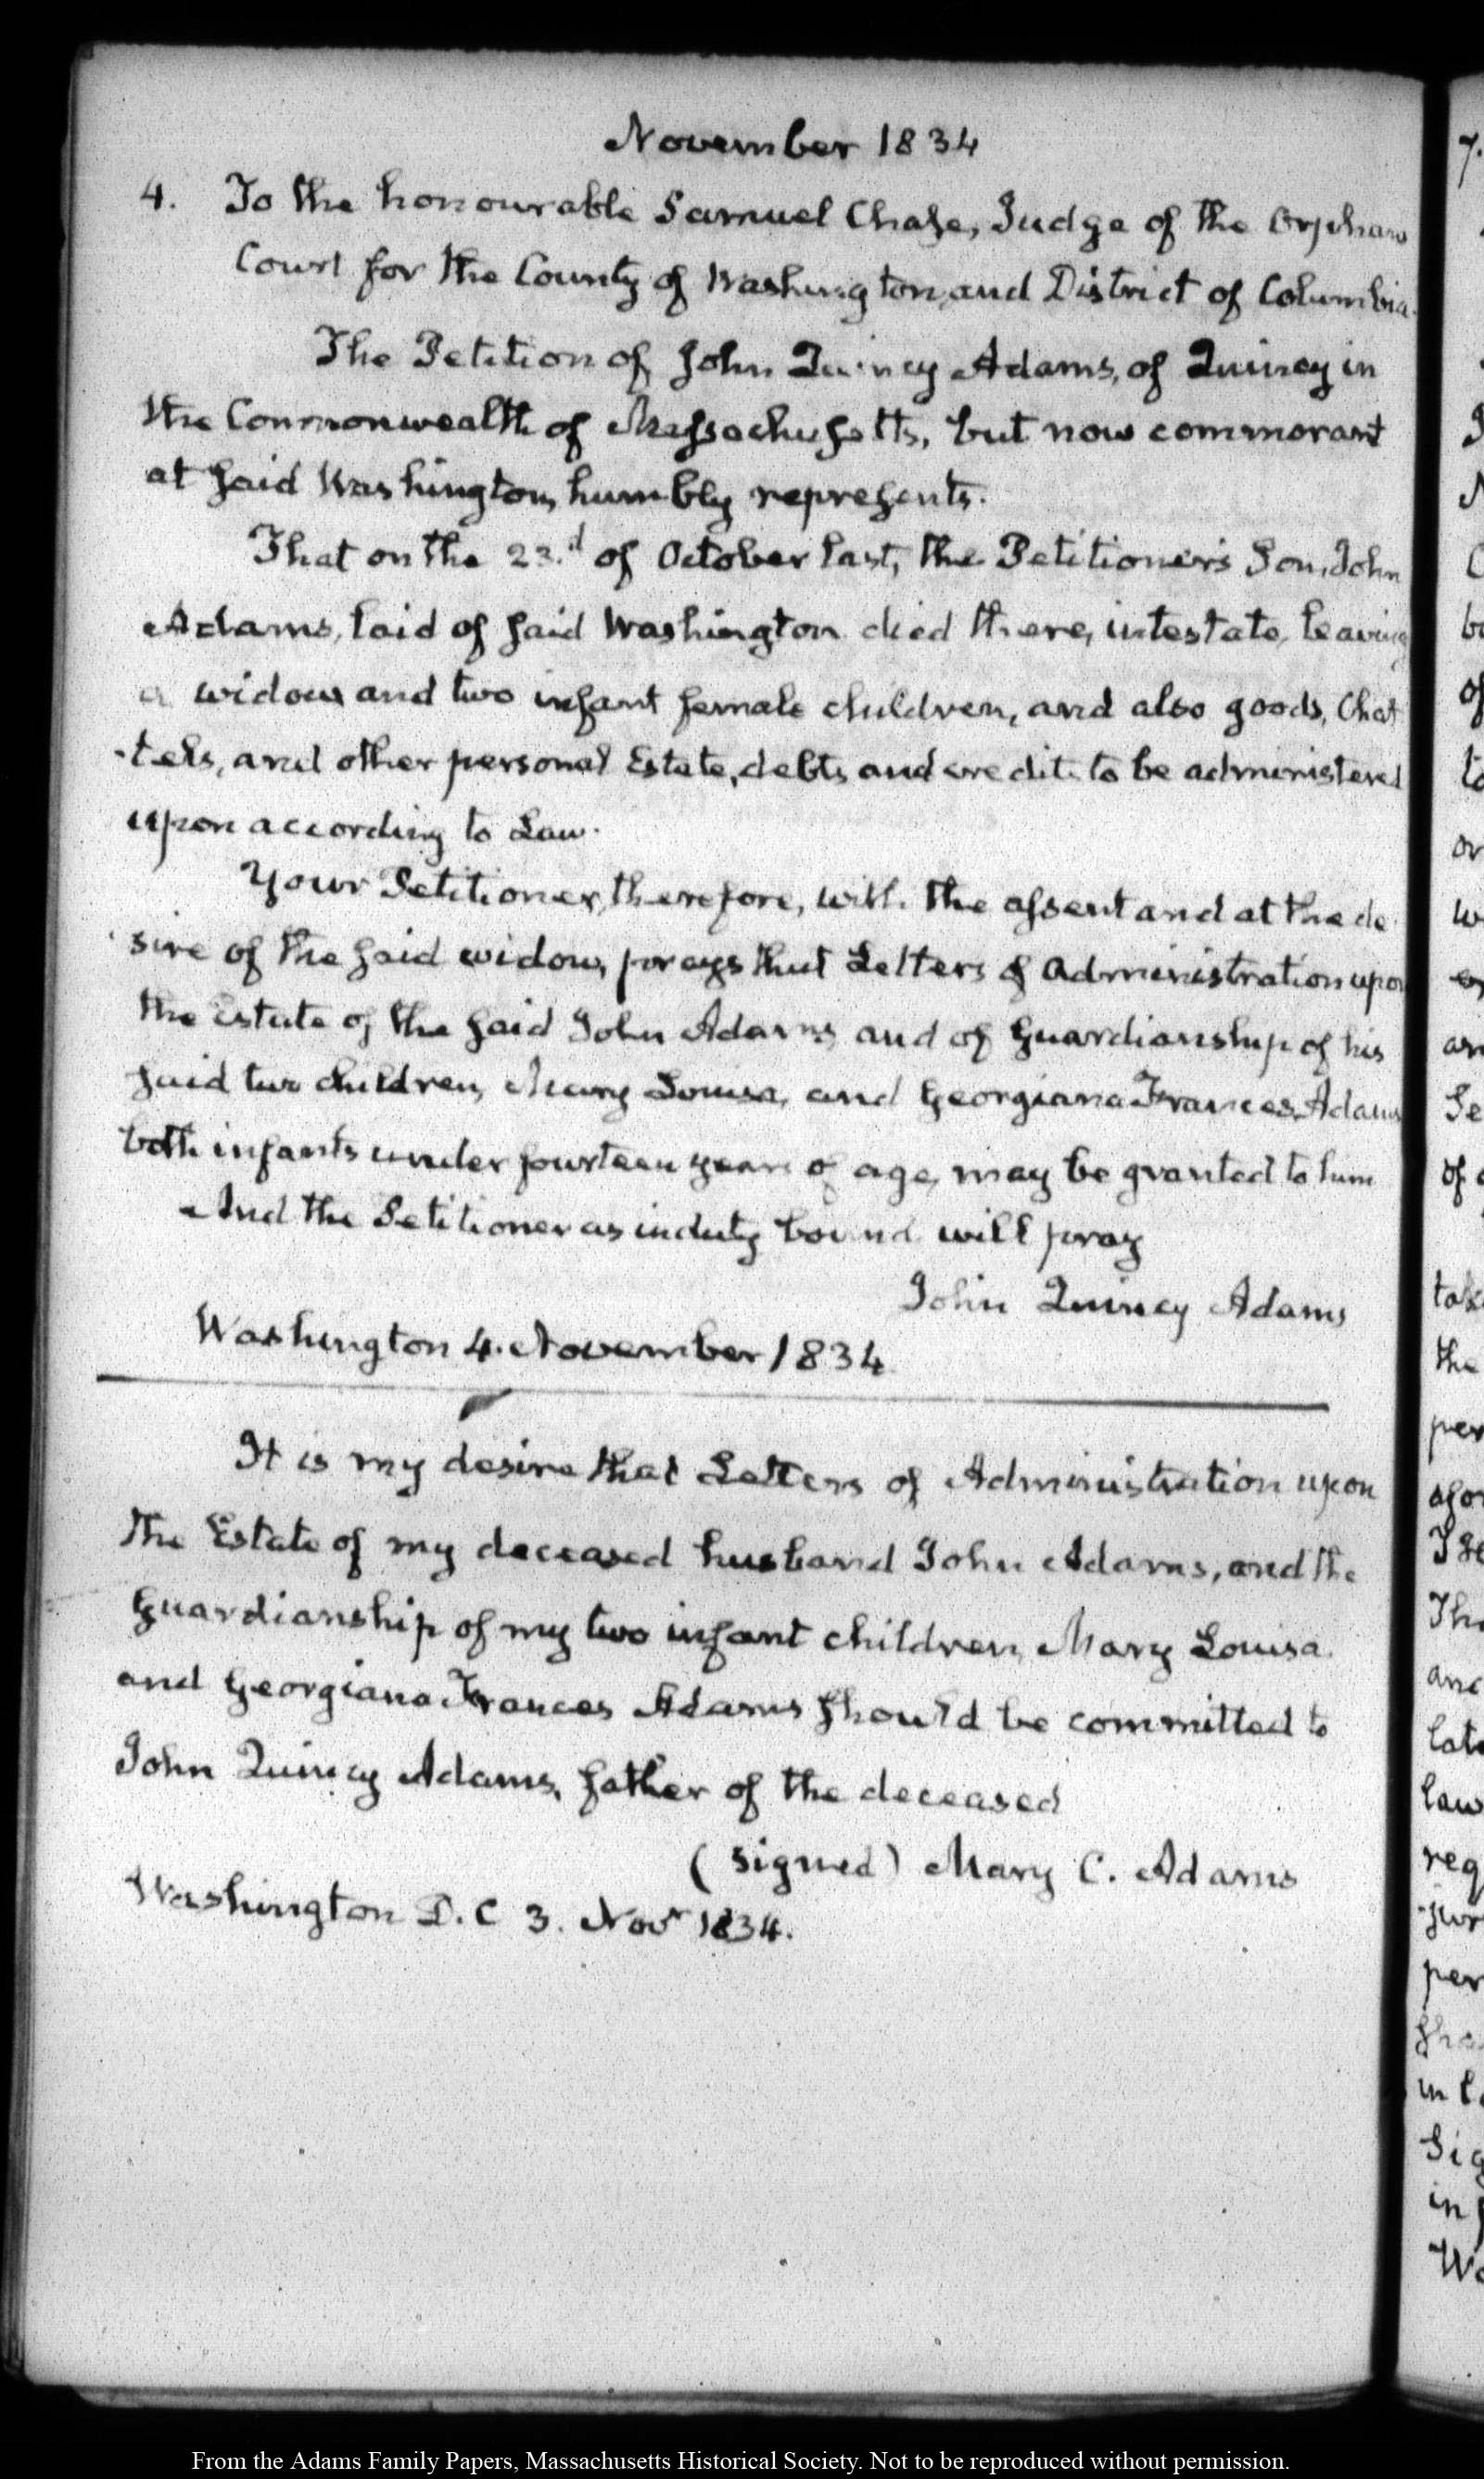 November 1834
4. To the honourable Samuel Chase, Judge of the Orphans
Court for the County of Washington, and District of Columbia.
The Petition of John Quincy Adams, of Quincy in
the Commonwealth of Massachusetts, but now commorant
at said Washington, humbly represents.
That on the 23.d of October last, the Petitioner's Son, John
Adams, laid of said Washington died there, intestate, leaving
a widow and two infant female children, and also goods, Chat
-tels, and other personal Estate, debts and credits to be administered
upon according to Law.
Your Petitioner, therefore, with the assent and at the de
sire of the said widow, prays that Letters of Administration upon
the estate of the said John Adams and of Guardianship of his
said two children, Mary Louisa, and Georgiana Frances Adams
both infants under fourteen years of age, may be granted to him
And the Petitioner as in duty bound will pray
John Quincy Adams
Washington 4. November 1834
It is my desire that Letters of Administration upon
the Estate of my deceased husband John Adams, and the
Guardianship of my two infant children, Mary Louisa
and Georgiana Frances Adams should be committed to
John Quincy Adams, father of the deceased
(signed) Mary C. Adams
Washington D.C 3. Novr 1834.
From the Adams Family Papers, Massachusetts Historical Society. Not to be reproduced without permission.